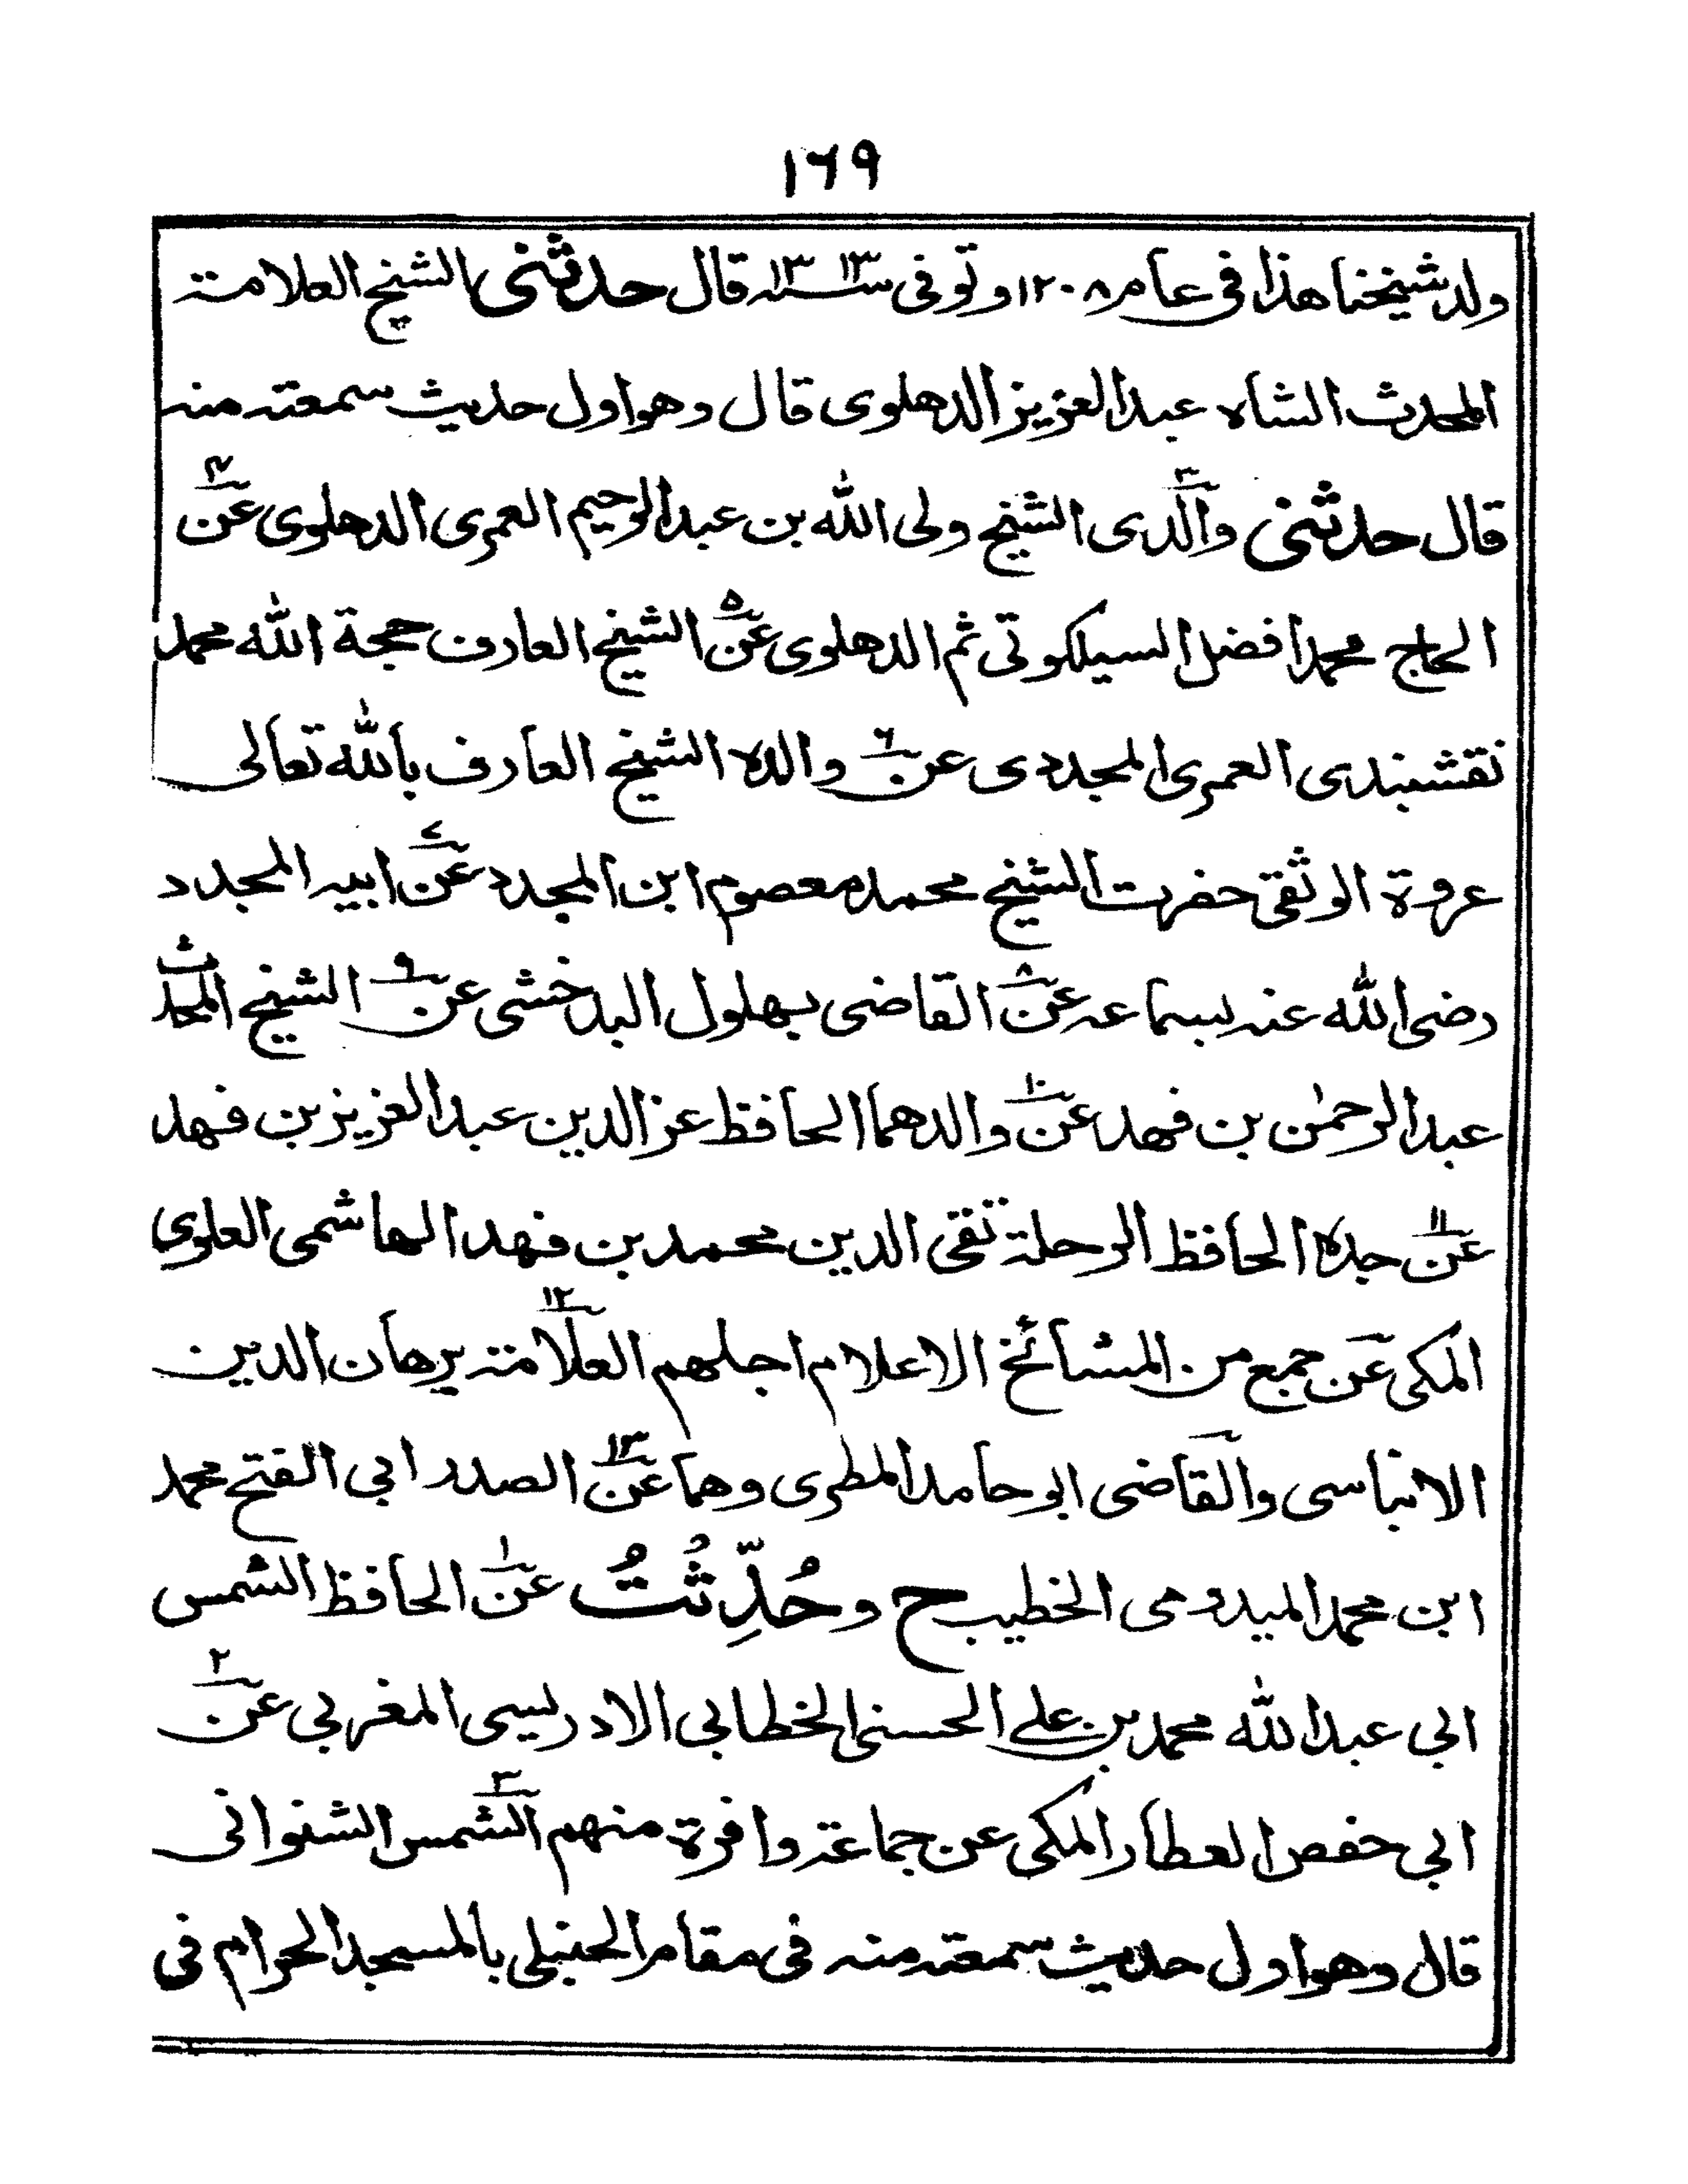 ١٦٩
ولد شيخنا هذا فى عام ١٢٠٨ وتوفى سنہ ١٣١٣ قال حدثنى الشيخ العلامة
المحدث الشاه عبد العزيز الدهلوى قال وهو اول حديث سمعته منه
قال حدثنى والدى ٣ الشيخ ولى الله بن عبد الرحيم العمرى الدهلوى عن ٤
الحاج محمد افضل السيلكوتى ثم الدهلوى عن ٥ الشيخ العارف حجة الله محمد
نقشبندى العمرى المجددى عن ٦ والده الشيخ العارف بالله تعالى
عروة الوثقى حضرت الشيخ محمد معصوم ابن المجدد عن ٧ ابيه المجدد
رضى الله عنه بسماعه عن ٨ القاضى بهلول البدخشى عن ٩ الشيخ المحدث
عبد الرحمٰن بن فهد عن ١٠ والدهما الحافظ عز الدين عبد العزيز بن فهد
عن ١١ جده الحافظ الرحلة تقى الدين محمد بن فهد الهاشمى العلوى
المكى عن جمع من المشائخ الاعلام اجلهم العلامة ١٢ برهان الدين
الانباسى والقاضى ابو حامد المطرى وهما عن ١٣ الصدر ابي الفتح محمد
ابن محمد الميدومى الخطيب ح وحُدِّثْتُ عن ١ الحافظ الشمس
ابي عبد الله محمد بن علے الحسنى الخطابي الادريسى المغربي عن ٢
ابي حفص العطار المكى عن جماعة وافرة منهم الشمس ٣ الشنوانى
قال وهو اول حديث سمعته منه فى مقام الحنبلى بالمسجد الحرام فى